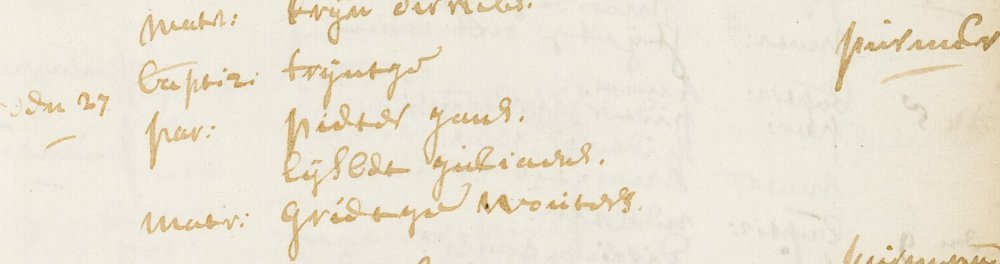 matr: trijn dirricks.
baptiz: trijntge
den 27
par: pieter jans.
lijsbet juliaens.
matr: grietge wouters.
purmer